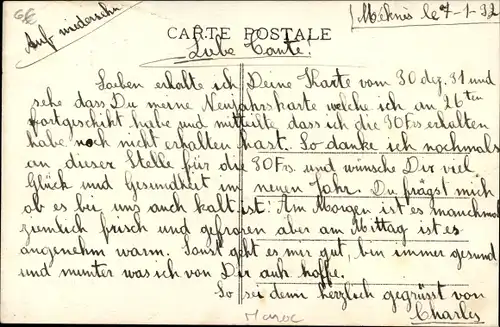 Auf niedersehn
Meknès le 7-1-32
CARTE POSTALE
Liebe Tante!
Soeben erhalte ich Deine Karte vom 30 dez. 31 und
sehe dass Du meine Neujahrskarte welche ich an 26ten
fortgeschikt habe und mitteilte dass ich die 30Frs. erhalten
habe noch nicht erhalten hast. So danke ich nochmals
an dieser Stelle für die 30Frs. und wünsche Dir viel
Glück und Gesundheit im neuen Jahr. Du frägst mich
ob es bei uns auch kalt ist! Am Morgen ist es manchmal
ziemlich frisch und gefroren aber am Mittag ist es
angenehm warm. Sonst geht es mir gut, bin immer gesund
und munter was ich von Dir auh hoffe.
So sei denn herzlich gegrüsst von
Charles
Maroc